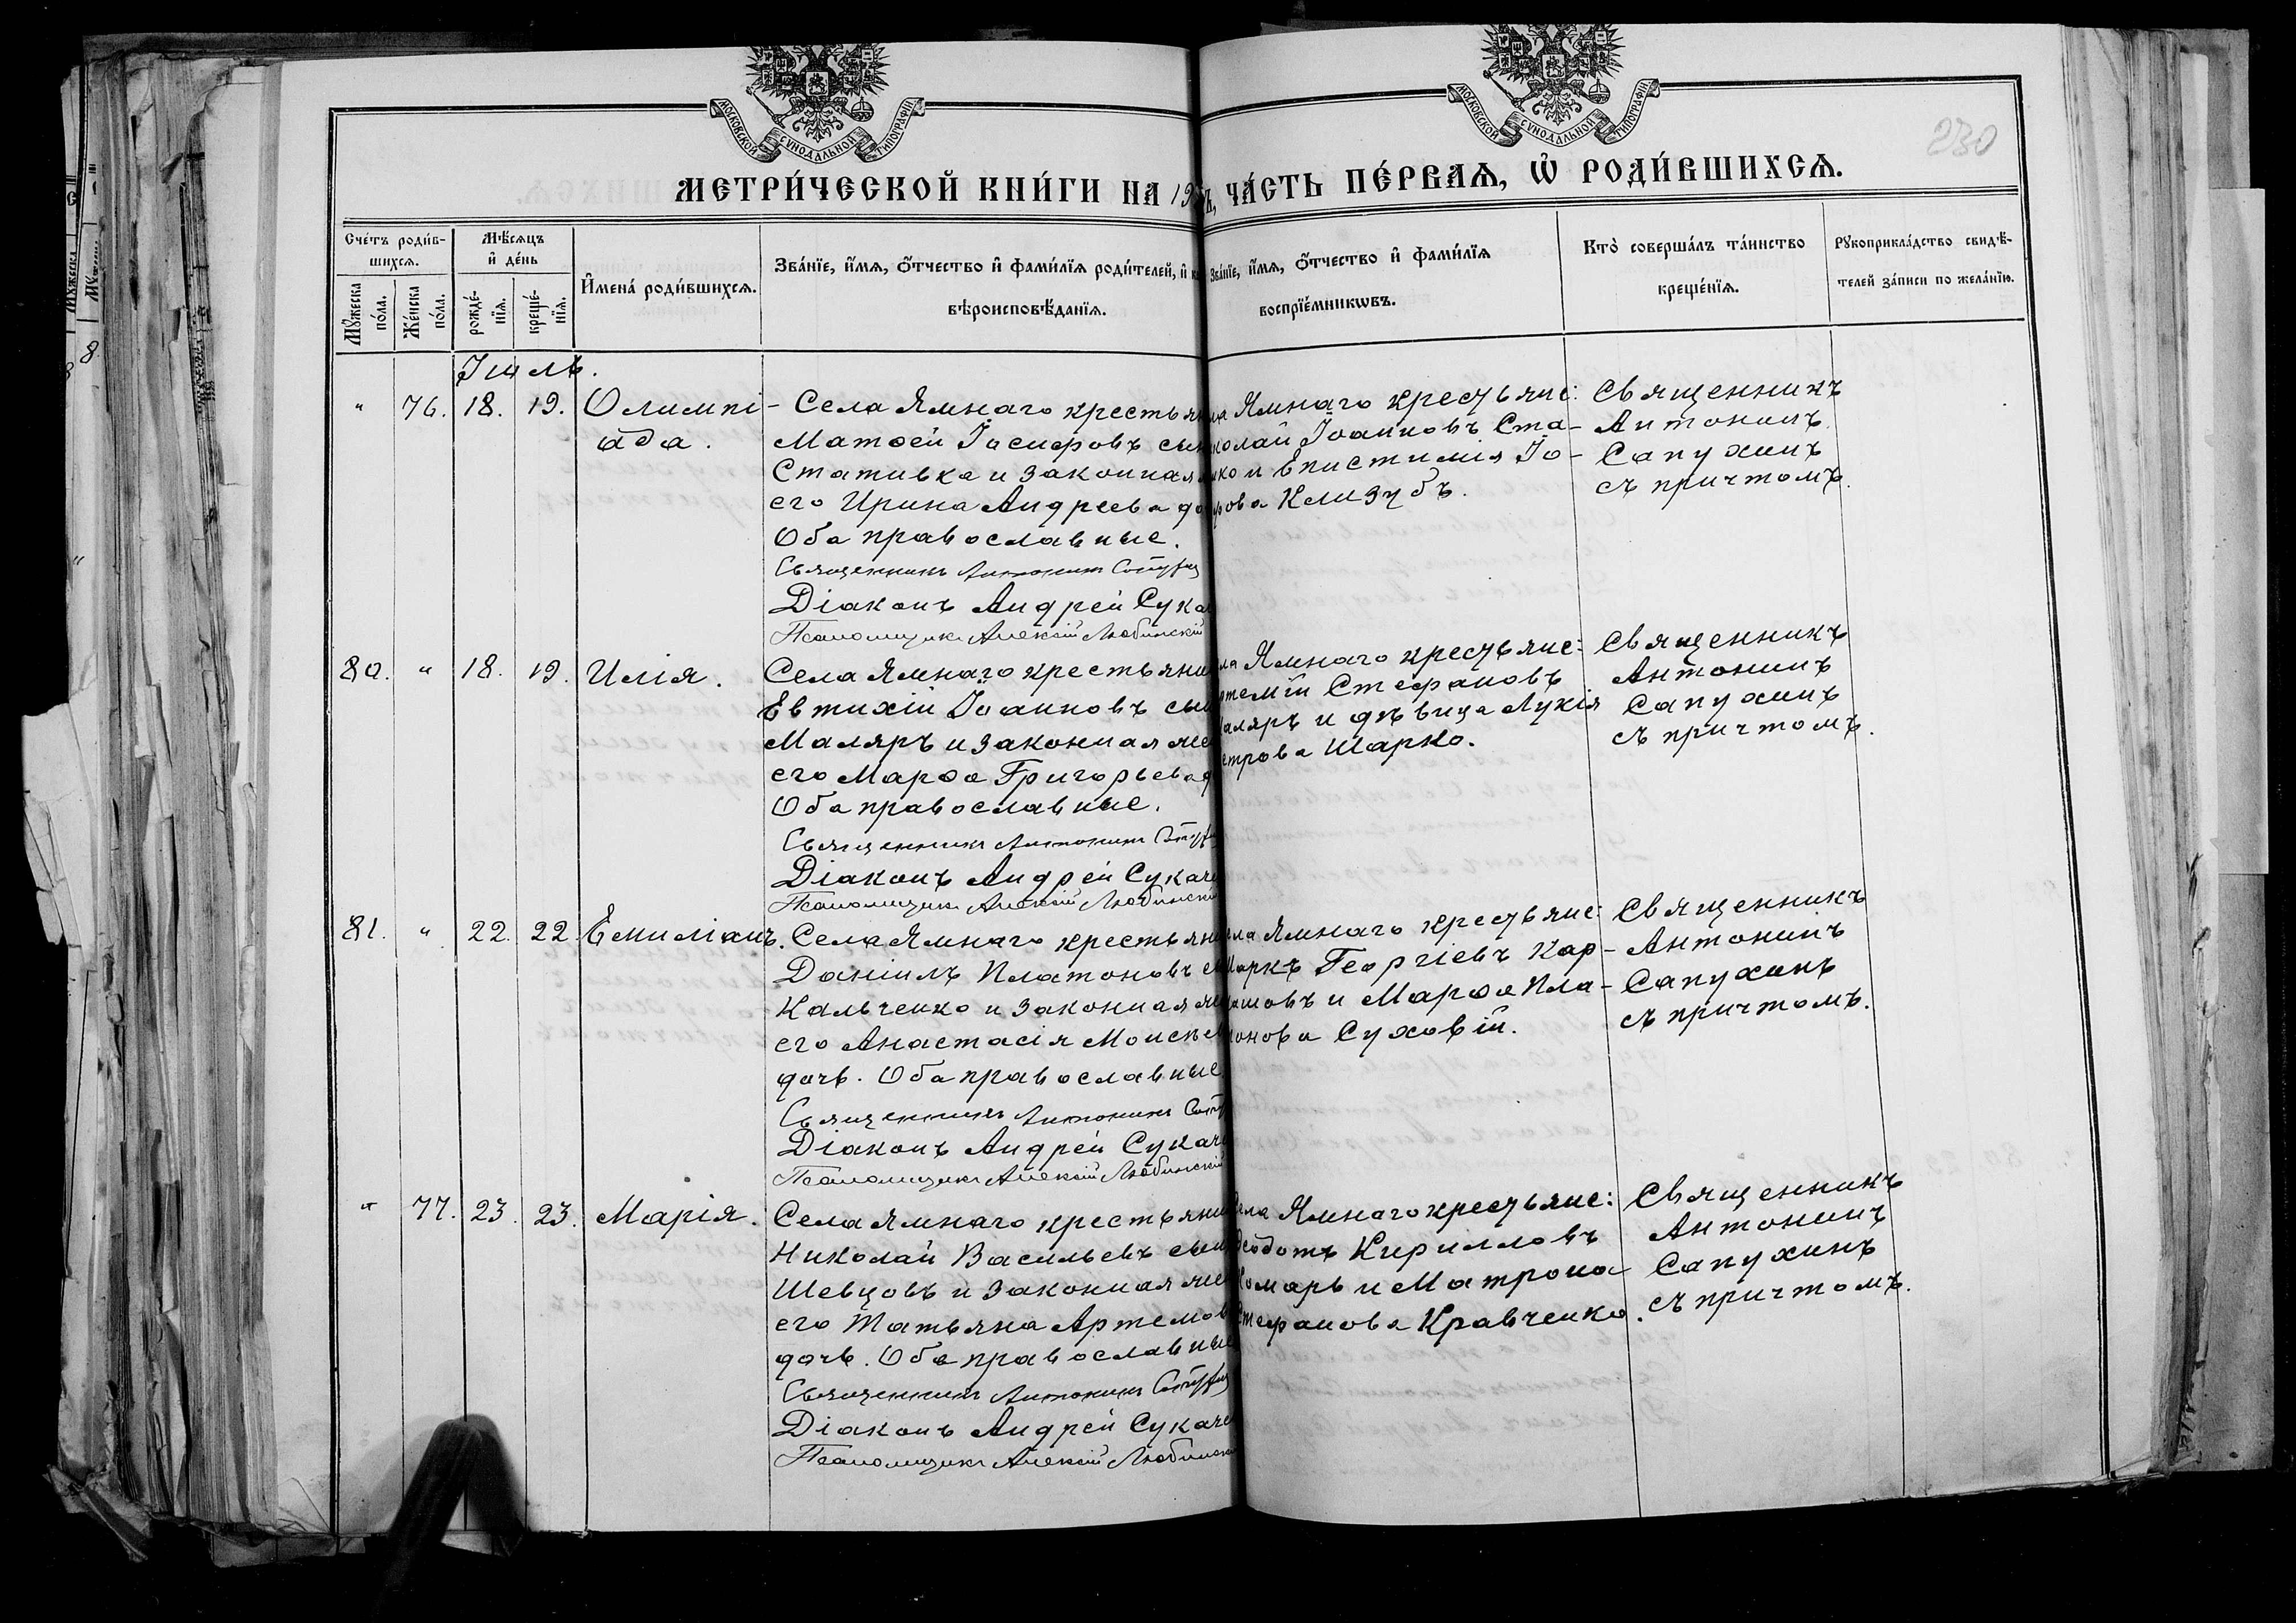 МОСКОВСКОЙ СѴНОДАЛЬНОЙ ТИПОГРАФІИ
МОСКОВСКОЙ СѴНОДАЛЬНОЙ ТИПОГРАФІИ
230
МЕТРИ́ЧЕСКОЙ КНИ́ГИ НА 19 ЧА́СТЬ ПЕ́РВАѦ, Ѡ҆ РОДИ́ВШИХСѦ.
Сче́тъ роди́в-
шихсѧ.
Мꙋ́жеска
по́ла.
Же́нска
по́ла.
Мѣ́сѧцъ
и҆ де́нь
рожде́-
нїѧ.
креще́-
нїѧ.
И҆мена̀ роди́вшихсѧ.
Зва́нїе, и҆́мѧ, ѻ҆́тчество и҆ фами́лїѧ роди́телей, и҆
вѣроисповѣ́данїѧ.
Зва́нїе, и҆́мѧ, ѻ҆́тчество и҆ фами́лїѧ
воспрїе́мникѡвъ.
Кто̀ соверша́лъ та́инство
креще́нїѧ.
Рꙋкоприкла́дство свидѣ́-
телей за́писи по жела́нїю.
Іюль.
" 76. 18. 19. Олимпі-
ада.
Села Ямнаго крестьян
Матѳей Іосифовъ сын
Стативка и законная
его Ирина Андреева до
Оба православные.
Священникъ Антонинъ Сапух
Діаконъ Андрей Сука
Псаломщикъ Алексій Любинскій
Ямнаго крестьяне:
колай Іоанновъ Ста-
ко и Епистимія Іо-
рова Клизубъ.
Священникъ
Антонинъ
Сапухинъ
съ причтомъ.
80. " 18. 19. Илія.
Села Ямнаго крестьяни
Евтихій Іоанновъ сын
Маляръ и законная же
его Марѳа Григорьева д
Оба православные.
Священникъ Антонинъ Сапух
Діаконъ Андрей Сукаче
Псаломщикъ Алексій Любинскі
ла Ямнаго крестьяне:
ртемій Стефановъ
аляръ и дѣвица Лукія
етрова Шарко.
Священникъ
Антонинъ
Сапухинъ
съ причтомъ.
81. " 22. 22. Емиліанъ.
Села Ямнаго крестьяни
Даніилъ Платоновъ с
Кальченко и законная же
его Анастасія Моисѣев
дочь. Оба православные.
Священникъ Антонинъ Сапу
Діаконъ Андрей Сукаче
Псаломщикъ Алексій Любинскій
ела Ямнаго крестьяне:
Маркъ Георгіевъ Кар-
ашовъ и Марѳа Пла-
тонова Суховій.
Священникъ
Антонинъ
Сапухинъ
съ причтомъ.
" 77. 23. 23. Марія.
Села Ямнаго крестьяни
Николай Васильевъ сын
Шевцовъ и законная же
его Татьяна Артемов
дочь. Оба православные
Священникъ Антонинъ Сапух
Діаконъ Андрей Сукаче
Псаломщикъ Алексій Любинскі
Села Ямнаго крестьяне:
Ѳеодотъ Кирилловъ
Комарь и Матрона
Стефанова Кравченко.
Священникъ
Антонинъ
Сапухинъ
съ причтомъ.